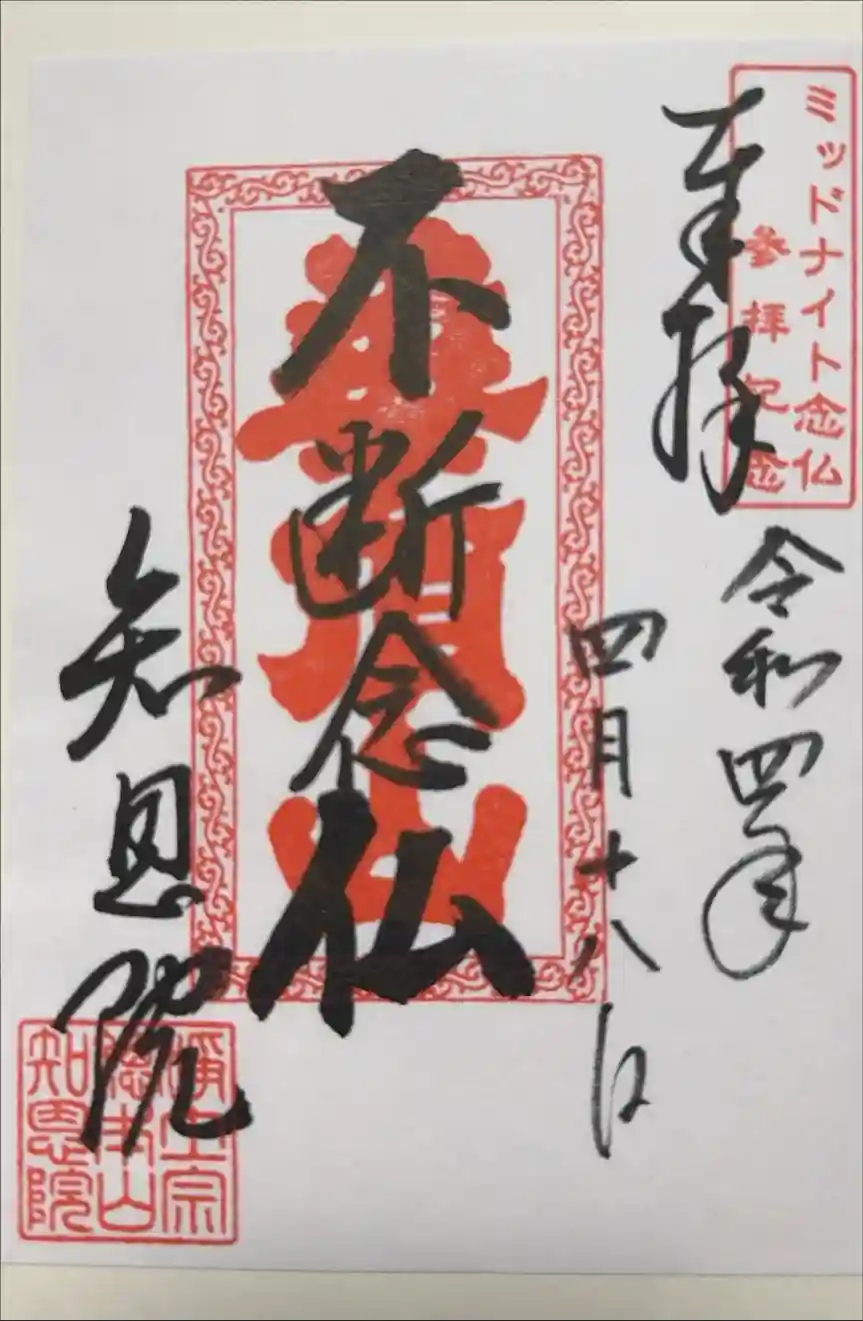 ミッドナイト念仏
參拝記念
奉拝
令和四年
四月十八日
不断念仏
華頂山
知恩院
浄土宗
總本山
知恩院